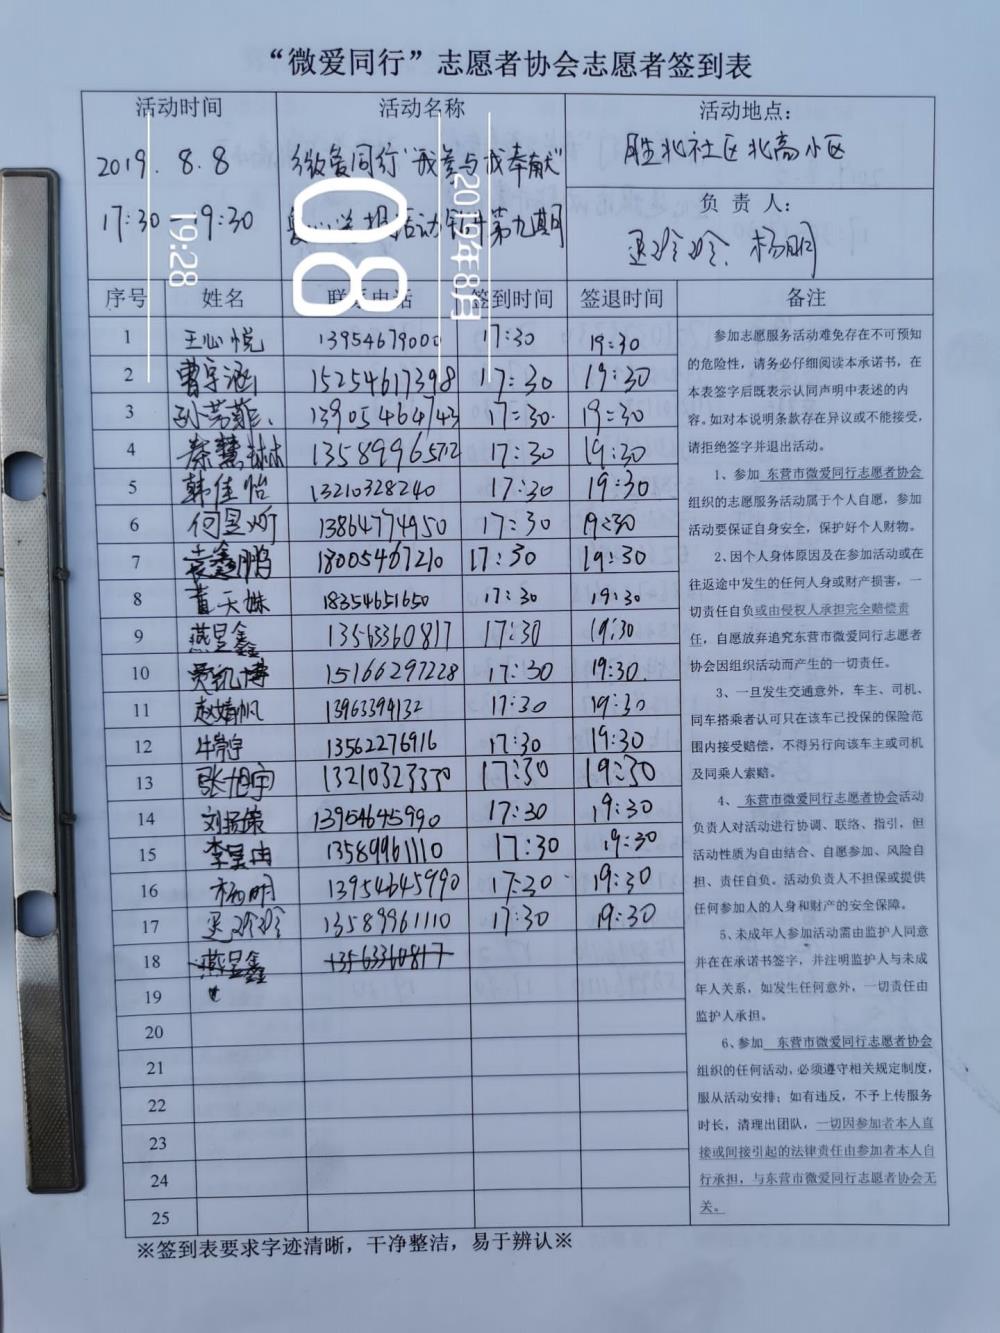 “微爱同行”志愿者协会志愿者签到表
活动时间 活动名称 活动地点：
2019. 8.8 微爱同行“我参与我奉献” 胜北社区北高小区
17:30—19:30 第九期 负 责 人：
杨明
19:28
08
2019年8月
序号 姓名 联系电话 签到时间 签退时间 备注
1 王心悦 13954679000 17:30 19:30
2 曹宇涵 15254617398 17:30 19:30
3 13905464743 17:30 19:30
4 秦慧林 13589996572 17:30 19:30
5 韩佳怡 13210328240 17:30 19:30
6 何昱昕 13864774950 17:30 19:30
7 袁鑫鹏 18005467210 17:30 19:30
8 18354651650 17:30 19:30
9 燕昱鑫 13563360817 17:30 19:30
10 贾凯博 15166297228 17:30 19:30
11 赵婧帆 13963394132 17:30 19:30
12 13562276916 17:30 19:30
13 张旭宇 17:30 19:30
14 刘扬策 13954645990 17:30 19:30
15 李昊由 13589961110 17:30 19:30
16 杨明 13954645990 17:30 19:30
17 13589961110 17:30 19:30
18 燕昱鑫 13563360817
19
20
21
22
23
24
25
参加志愿服务活动难免存在不可预知
的危险性，请务必仔细阅读本承诺书，在
本表签字后既表示认同声明中表述的内
容。如对本说明条款存在异议或不能接受，
请拒绝签字并退出活动。
1、参加 东营市微爱同行志愿者协会
组织的志愿服务活动属于个人自愿，参加
活动要保证自身安全，保护好个人财物。
2、因个人身体原因及在参加活动或在
往返途中发生的任何人身或财产损害，一
切责任自负或由侵权人承担完全赔偿责
任，自愿放弃追究东营市微爱同行志愿者
协会因组织活动而产生的一切责任。
3、一旦发生交通意外，车主、司机、
同车搭乘者认可只在该车已投保的保险范
围内接受赔偿，不得另行向该车主或司机
及同乘人索赔。
4、 东营市微爱同行志愿者协会活动
负责人对活动进行协调、联络、指引，但
活动性质为自由结合、自愿参加、风险自
担、责任自负。活动负责人不担保或提供
任何参加人的人身和财产的安全保障。
5、未成年人参加活动需由监护人同意
并在在承诺书签字，并注明监护人与未成
年人关系，如发生任何意外，一切责任由
监护人承担。
6、参加 东营市微爱同行志愿者协会
组织的任何活动，必须遵守相关规定制度，
服从活动安排；如有违反，不予上传服务
时长，清理出团队，一切因参加者本人直
接或间接引起的法律责任由参加者本人自
行承担，与东营市微爱同行志愿者协会无
关。
※签到表要求字迹清晰，干净整洁，易于辨认※